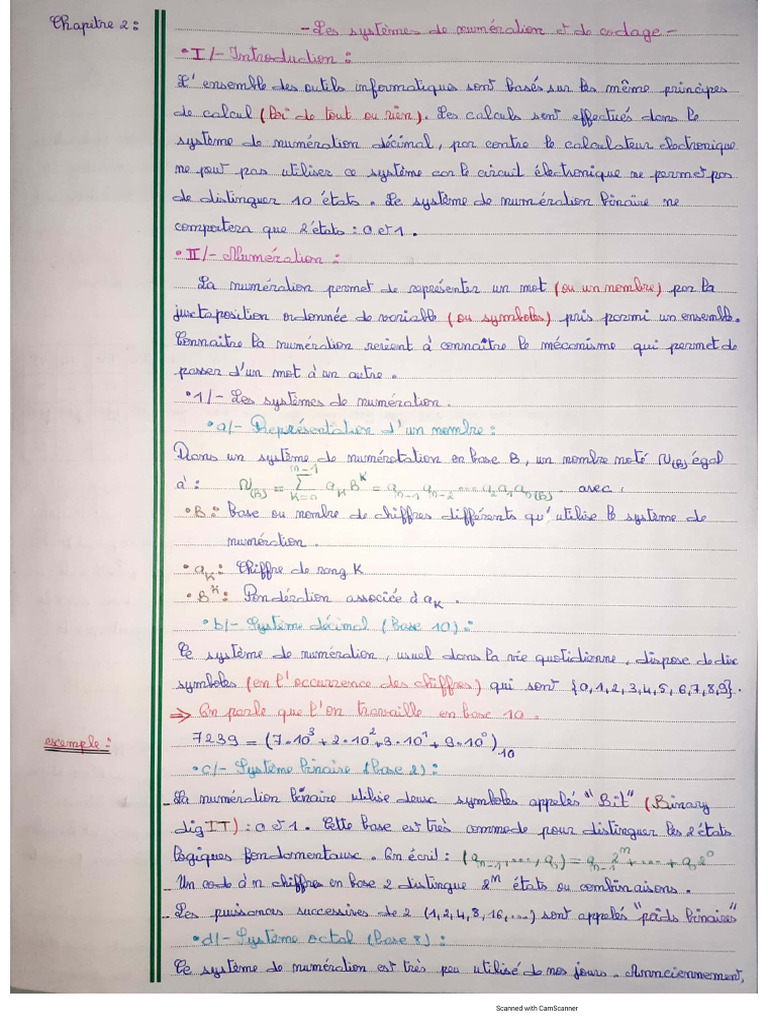 Chapitre 2 :
- Les systèmes de numération et de codage -
• I/- Introduction :
L'ensemble des outils informatiques sont basés sur les même principes
de calcul (loi de tout ou rien). Les calculs sont effectués dans le
système de numération décimal, par contre le calculateur électronique
ne peut pas utiliser ce système car le circuit électronique ne permet pas
de distinguer 10 états. Le système de numération binaire ne
comportera que 2 états : 0 et 1.
• II/- Numération :
La numération permet de représenter un mot (ou un nombre) par la
juxtaposition ordonnée de variable (ou symboles) pris parmi un ensemble.
Connaitre la numération revient à connaître le mécanisme qui permet de
passer d'un mot à un autre.
• 1/- Les systèmes de numération.
• a/- Représentation d'un nombre :
Dans un système de numérotation en base B, un nombre noté N(B) égal
à : N(B) = ∑_{k=0}^{n-1} a_k B^k = a_{n-1} a_{n-2} .... a_2 a_1 a_{0(B)} avec :
• B : Base ou nombre de chiffres différents qu'utilise le système de
numération.
• a_k : Chiffre de rang K
• B^k : Pondération associée à a_k.
• b/- Système décimal (base 10) :
Ce système de numération, usuel dans la vie quotidienne, dispose de dix
symboles (en l'occurrence des chiffres) qui sont {0,1,2,3,4,5,6,7,8,9}.
⇒ On parle que l'on travaille en base 10.
exemple :
7239 = (7·10³ + 2·10² + 3·10¹ + 9·10⁰)₁₀
• c/- Système binaire (base 2) :
- La numération binaire utilise deux symboles appelés "Bit" (Binary
digIT) : 0 et 1. Cette base est très commode pour distinguer les 2 états
logiques fondamentaux. On écrit : (a_{n-1}, ...., a_0) = a_{n-1} 2^n + .... + a_0 2^0
- Un code à n chiffres en base 2 distingue 2^n états ou combinaisons.
- Les puissances successives de 2 (1,2,4,8,16,....) sont appelés "poids binaires"
• d/- Système octal (base 8) :
Ce système de numération est très peu utilisé de nos jours. Annciennement,
Scanned with CamScanner